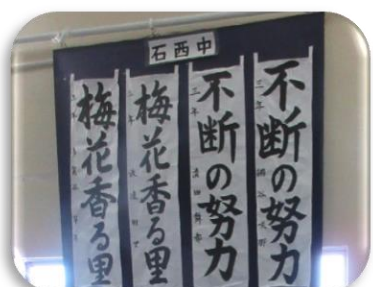 石西中
不断の努力
不断の努力
三年
梅花香る里
梅花香る里